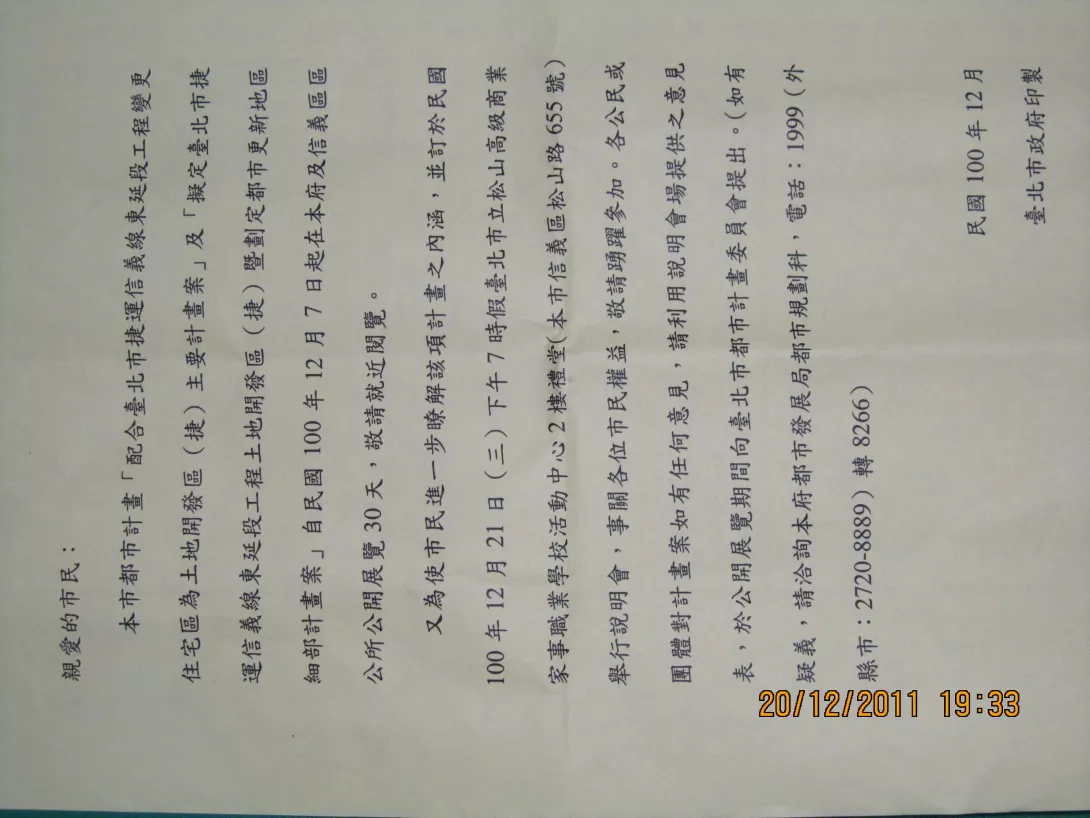 親愛的市民：
本市都市計畫「配合臺北市捷運信義線東延段工程變更
住宅區為土地開發區（捷）主要計畫案」及「擬定臺北市捷
運信義線東延段工程土地開發區（捷）暨劃定都市更新地區
細部計畫案」自民國 100 年 12 月 7 日起在本府及信義區區
公所公開展覽 30 天，敬請就近閱覽。
又為使市民進一步瞭解該項計畫之內涵，並訂於民國
100 年 12 月 21 日（三）下午 7 時假臺北市立松山高級商業
家事職業學校活動中心 2 樓禮堂(本市信義區松山路 655 號)
舉行說明會，事關各位市民權益，敬請踴躍參加。各公民或
團體對計畫案如有任何意見，請利用說明會場提供之意見
表，於公開展覽期間向臺北市都市計畫委員會提出。（如有
疑義，請洽詢本府都市發展局都市規劃科，電話：1999（外
縣市：2720-8889）轉 8266）
民國 100 年 12 月
臺北市政府印製
20/12/2011 19:33